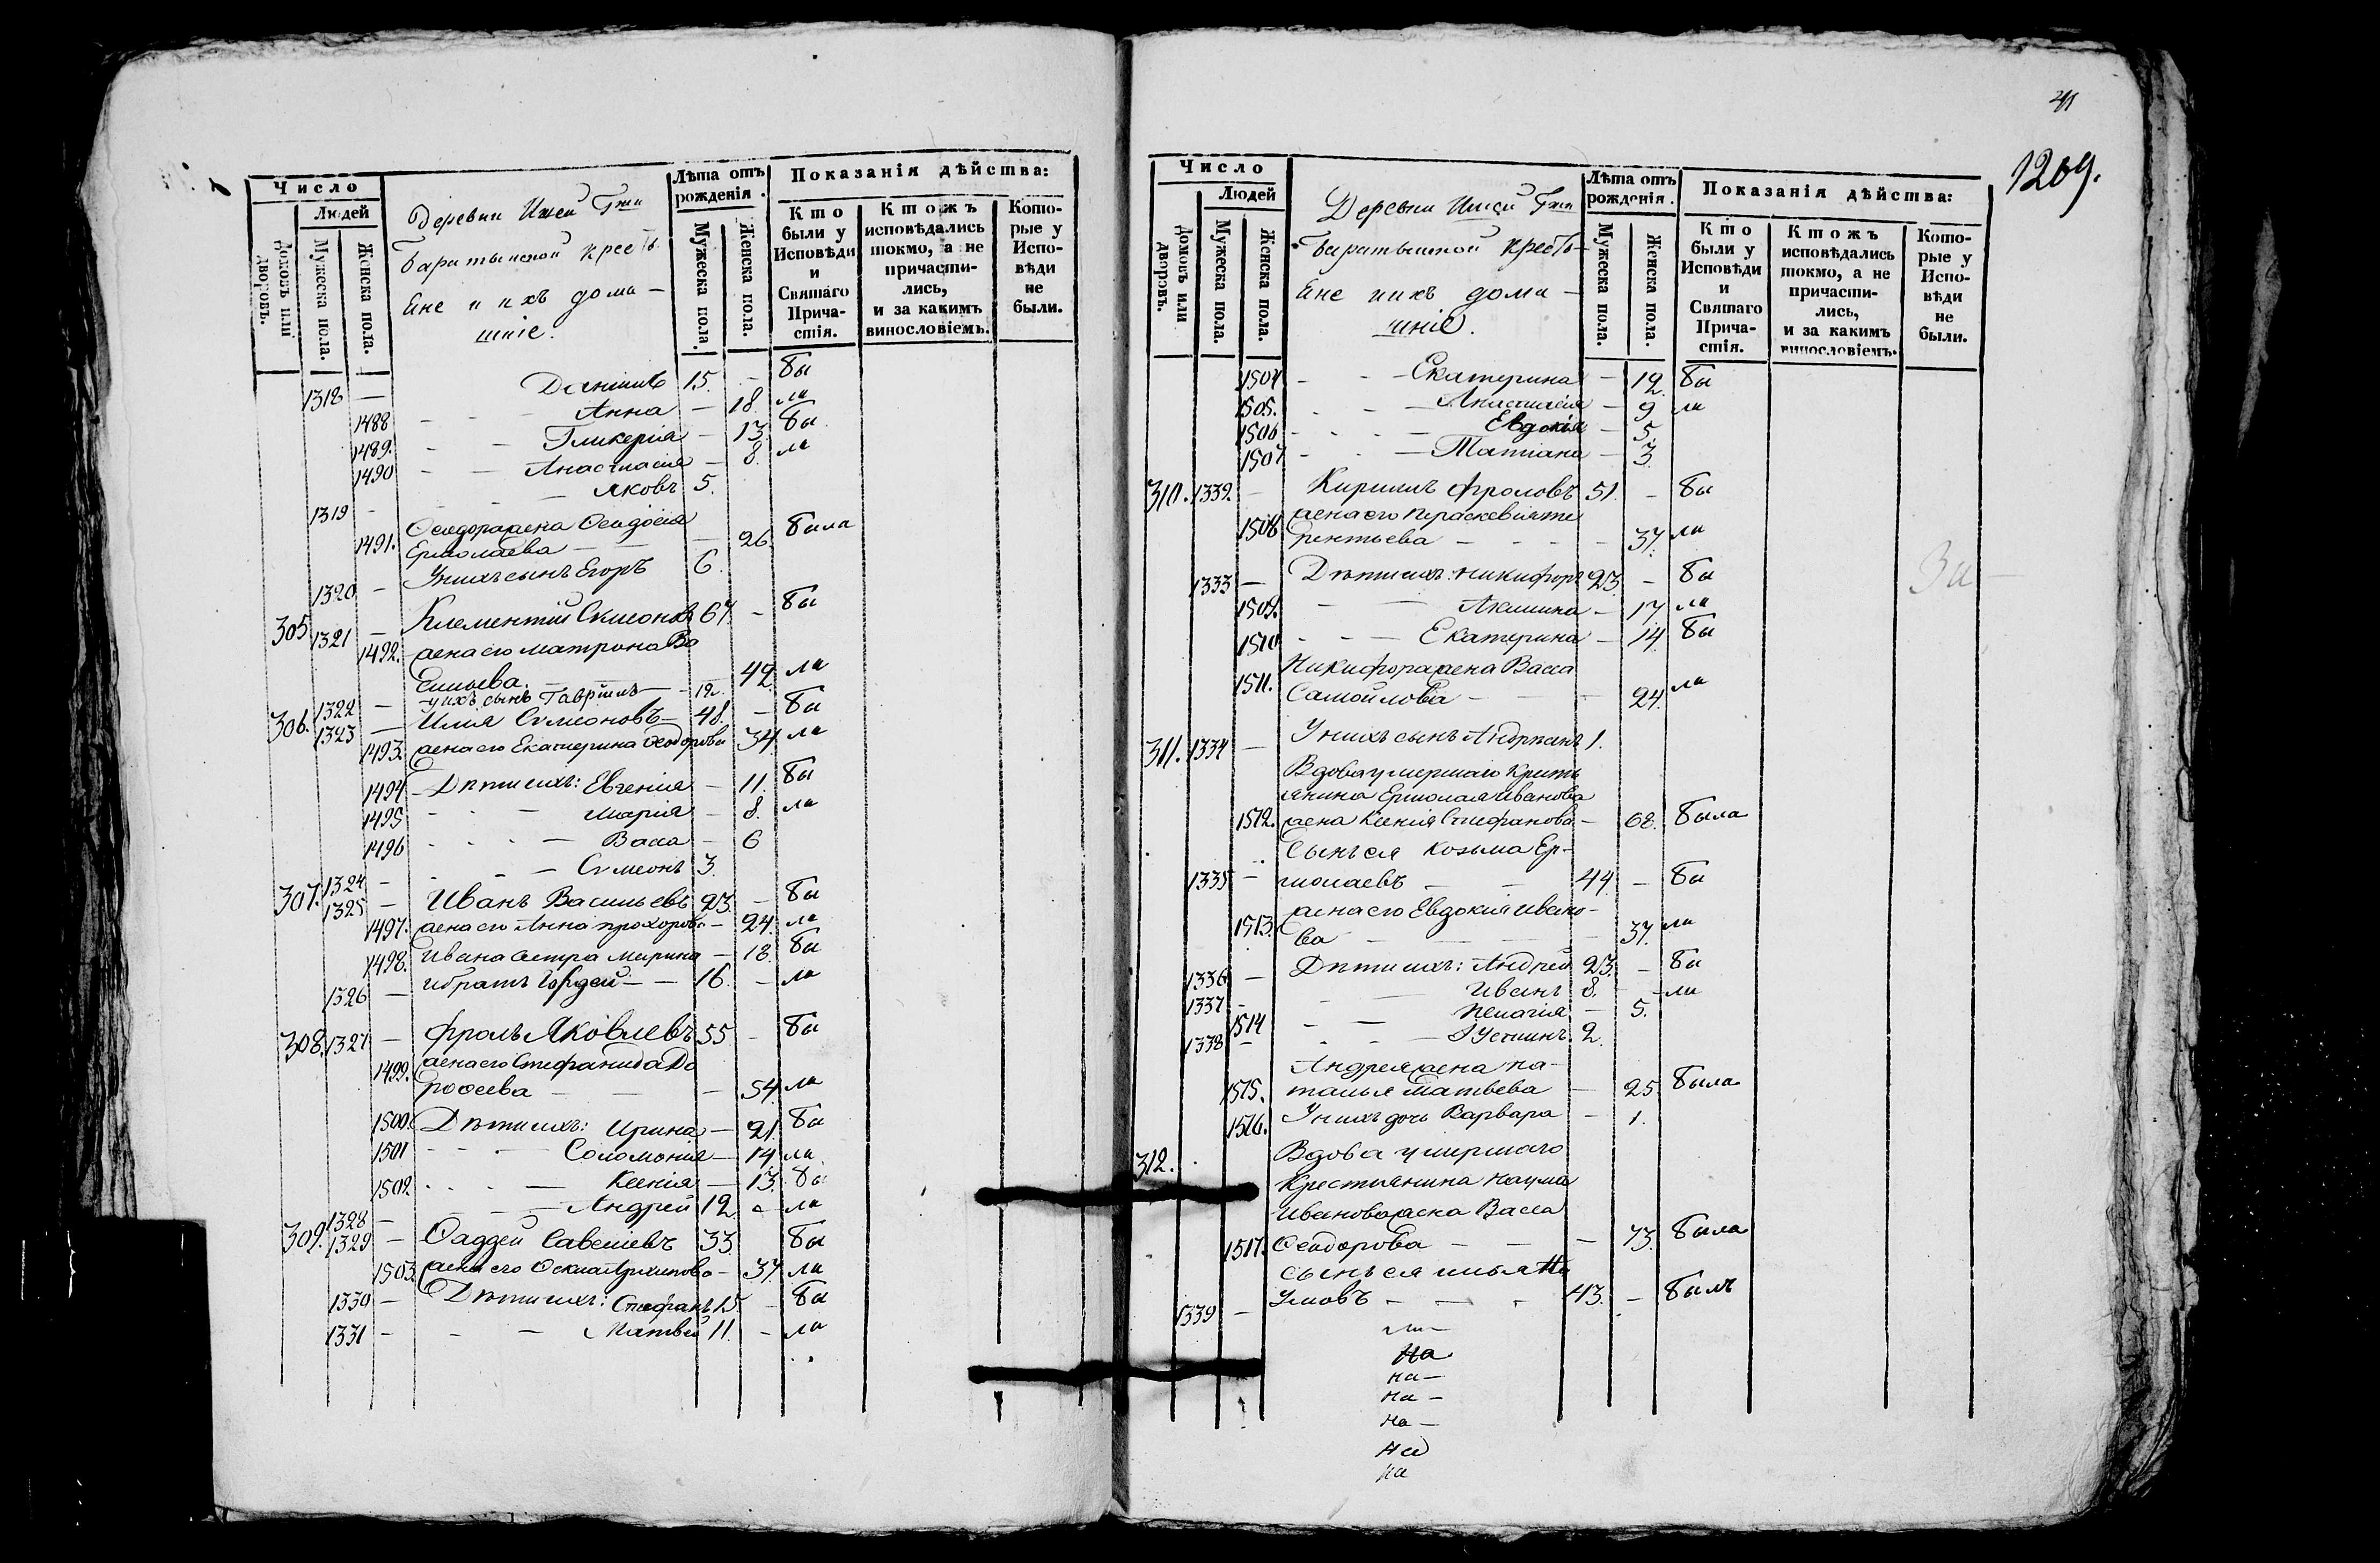 Число
Людей
Домовъ или дворовъ.
Мужеска пола.
Женска пола.
Деревни
Баратынской крестья
не и ихъ дома-
шніе.
Лѣта отъ рожденія.
Мужеска пола.
Женска пола.
Показанія дѣйства:
Кто были у Исповѣди и Святаго Причастія.
Ктожъ исповѣдались токмо, а не причастились, и за какимъ винословіемъ.
Которые у Исповѣди не были.
1318 — Даніилъ 15. — бы
1488 Анна — 18. ли
1489. Гликерія — 13. бы
1490 Анастасія — 8. ли
1319 — Яковъ 5.
Ѳеодора жена Ѳеодосія
1491. Ермолаева — 26. была
1320 — У нихъ сынъ Егоръ 6.
305 1321 — Климентій Симеоновъ 67. — бы
1492. жена его Матрона Ва
сильева. — 42. ли
1322 — у ихъ сынъ Гавріилъ — 12.
306. 1323 — Илия Симеоновъ — 48. — бы
1493. жена его Екатерина Ѳеодорова 34. ли
1494 Дѣти ихъ: Евгенія — 11. бы
1495 Марія — 8. ли
1496 Васса — 6
1324 — Симеонъ 3.
307. 1325 — Иванъ Васильевъ 23. — бы
1497. жена его Анна Прохорова — 24. ли
1498. Ивана сестра Марина — 18. бы
1326 — и братъ Гордей — 16. — ли
308. 1327 — Фролъ Яковлевъ 55 — бы
1499. жена его Стефанида До
роѳеева — 54. ли
1500. Дѣти ихъ: Ирина — 21. бы
1501 Соломонія — 14 ли
1502 Ксенія — 13. бы
1328 — Андрей 12 ли
309. 1329 — Ѳаддей Савеліевъ 33 бы
1503. жена его Ѳекла Архипова — 37. ли
1330 — Дѣти ихъ: Стефанъ 15. — бы
1331 — Матвей 11. — ли
1209.
Число
Людей
Домовъ или дворовъ.
Мужеска пола.
Женска пола.
Деревни
Баратынской крестья-
не и ихъ дома-
шніе.
Лѣта отъ рожденія.
Мужеска пола.
Женска пола.
Показанія дѣйства:
Кто были у Исповѣди и Святаго Причастія.
Ктожъ исповѣдались токмо, а не причастились, и за какимъ винословіемъ.
Которые у Исповѣди не были.
1504 — Екатерина — 12. бы
1505. Анастасія — 9 ли
1506 Евдокія — 5.
1507 Татіана — 3.
310. 1332. — Кирилъ Фроловъ 51. — бы
жена его Параскевія Те
1508 рентьева — 37. ли
1333 — Дѣти ихъ: Никифоръ 23. — бы
1509. Акилина — 17 ли
1510 Екатерина — 14. бы
Никифора жена Васса
1511. Самойлова — 24. ли
311. 1334 — У нихъ сынъ Андріанъ 1.
Вдова умершаго крить
янина Ермолая Иванова
1512. жена Ксенія Стефанова — 68. была
Сынъ ея Козьма Ер-
1335 — молаевъ 44. — бы
жена его Евдокія Ивано-
1513. ва — 37. ли
1336 — Дѣти ихъ: Андрей 23. — бы
1337 — Иванъ 8. — ли
1514 Пелагія — 5.
1338 — Іустинъ 2.
Андрея жена На-
1515. талья Матвева — 25. была
1516. У нихъ дочь Варвара — 1.
312. Вдова умершаго
крестьянина Наума
Иванова жена Васса
1517. Ѳеодорова — 73. была
сынъ ея Илья На
1339 — умовъ — 43. — былъ
На
на —
на —
на —
на
на